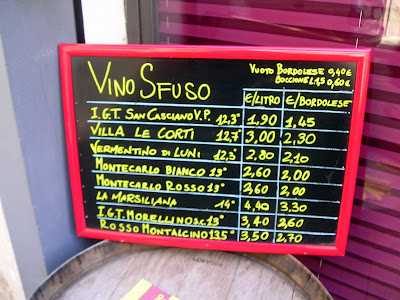 VUOTO BORDOLESE 0,40€
BOCCIONE L.15 0,60€
VINO SFUSO
€/LITRO €/BORDOLESE
I.G.T. SAN CASCIANO V.P. 12,3° 1,90 1,45
VILLA LE CORTI 12,7° 3,00 2,30
VERMENTINO DI LUNI 12,5° 2,80 2,10
MONTECARLO BIANCO 13° 2,60 2,00
MONTECARLO ROSSO 13° 2,60 2,00
LA MARSILIANA 14° 4,40 3,30
I.G.T. MORELLINO SC. 13° 3,40 2,60
ROSSO MONTALCINO 13,5° 3,50 2,70